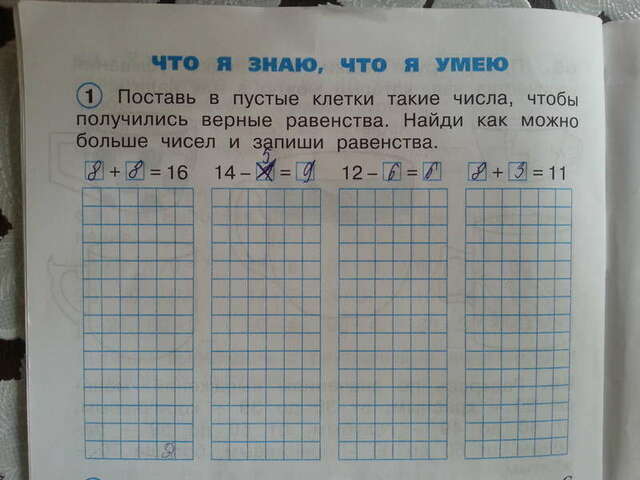 ЧТО Я ЗНАЮ, ЧТО Я УМЕЮ
1 Поставь в пустые клетки такие числа, чтобы
получились верные равенства. Найди как можно
больше чисел и запиши равенства.
5
8 + 8 = 16 14 – = 9 12 – 6 = 6 8 + 3 = 11